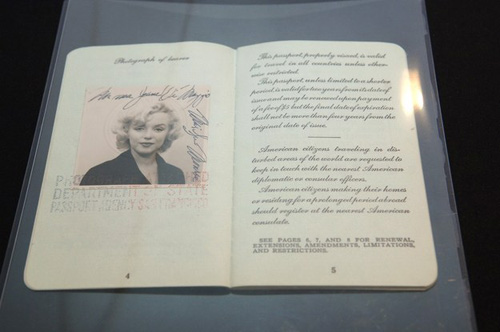 Photograph of bearer
Norma Jeane Di Maggio
DEPARTMENT OF STATE
PASSPORT AGENCY
4
This passport, properly issued, is valid
for travel in all countries unless other-
wise restricted.
This passport, unless limited to a shorter
period, is valid for two years from its date of
issue and may be renewed upon payment
of a fee of $5 but the final date of expiration
shall not be more than four years from the
original date of issue.
American citizens traveling in dis-
turbed areas of the world are requested to
keep in touch with the nearest American
diplomatic or consular officers.
American citizens making their homes
or residing for a prolonged period abroad
should register at the nearest American
consulate.
SEE PAGES 6, 7, AND 8 FOR RENEWAL,
EXTENSIONS, AMENDMENTS, LIMITATIONS,
AND RESTRICTIONS.
5